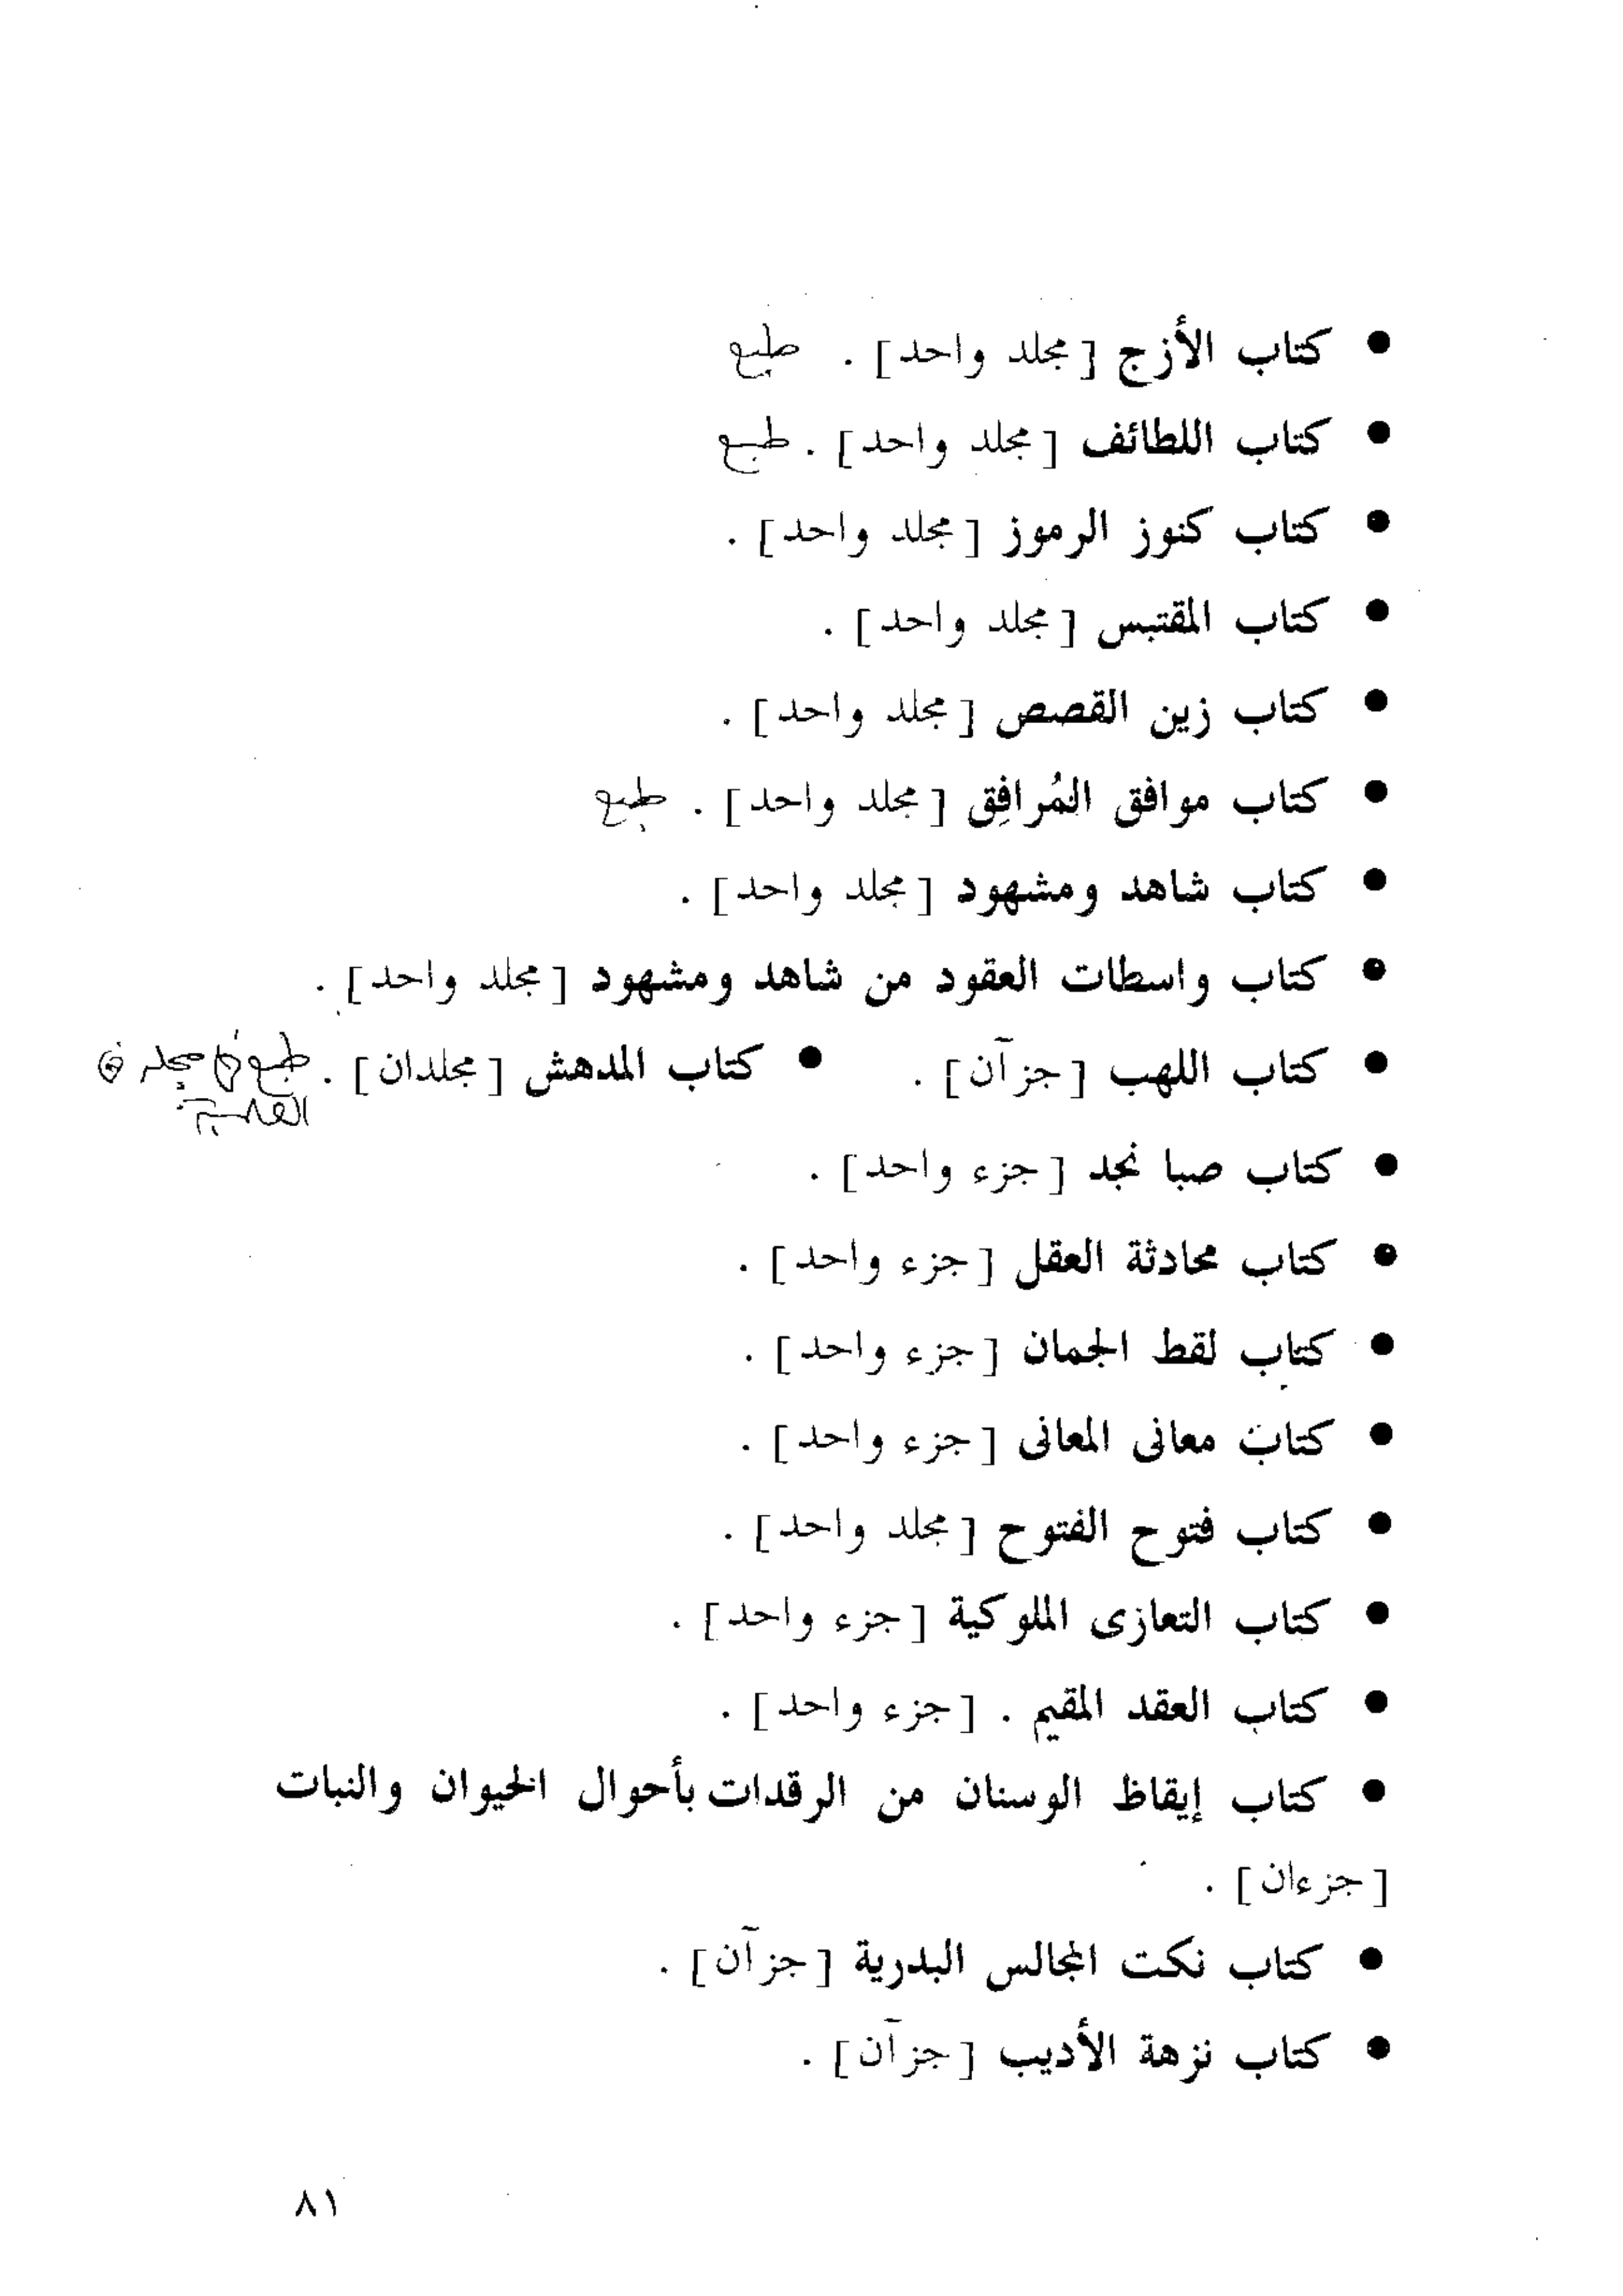 • كتاب الأزج [مجلد واحد] . طبع
• كتاب اللطائف [مجلد واحد] . طبع
• كتاب كنوز الرموز [مجلد واحد] .
• كتاب المقتبس [مجلد واحد] .
• كتاب زين القصص [مجلد واحد] .
• كتاب موافق المُرافِق [مجلد واحد] . طبع
• كتاب شاهد ومشهود [مجلد واحد] .
• كتاب واسطات العقود من شاهد ومشهود [مجلد واحد] .
• كتاب اللهب [جزآن] . • كتاب المدهش [مجلدان] . طبع في مجلد
• كتاب صبا نجد [جزء واحد] .
• كتاب محادثة العقل [جزء واحد] .
• كتاب لقط الجمان [جزء واحد] .
• كتاب معانى المعانى [جزء واحد] .
• كتاب فتوح الفتوح [مجلد واحد] .
• كتاب التعازى الملوكية [جزء واحد] .
• كتاب العقد المقيم . [جزء واحد] .
• كتاب إيقاظ الوسنان من الرقدات بأحوال الحيوان والنبات
[جزءان] .
• كتاب نكت المجالس البدرية [جزآن] .
• كتاب نزهة الأديب [جزآن] .
٨١